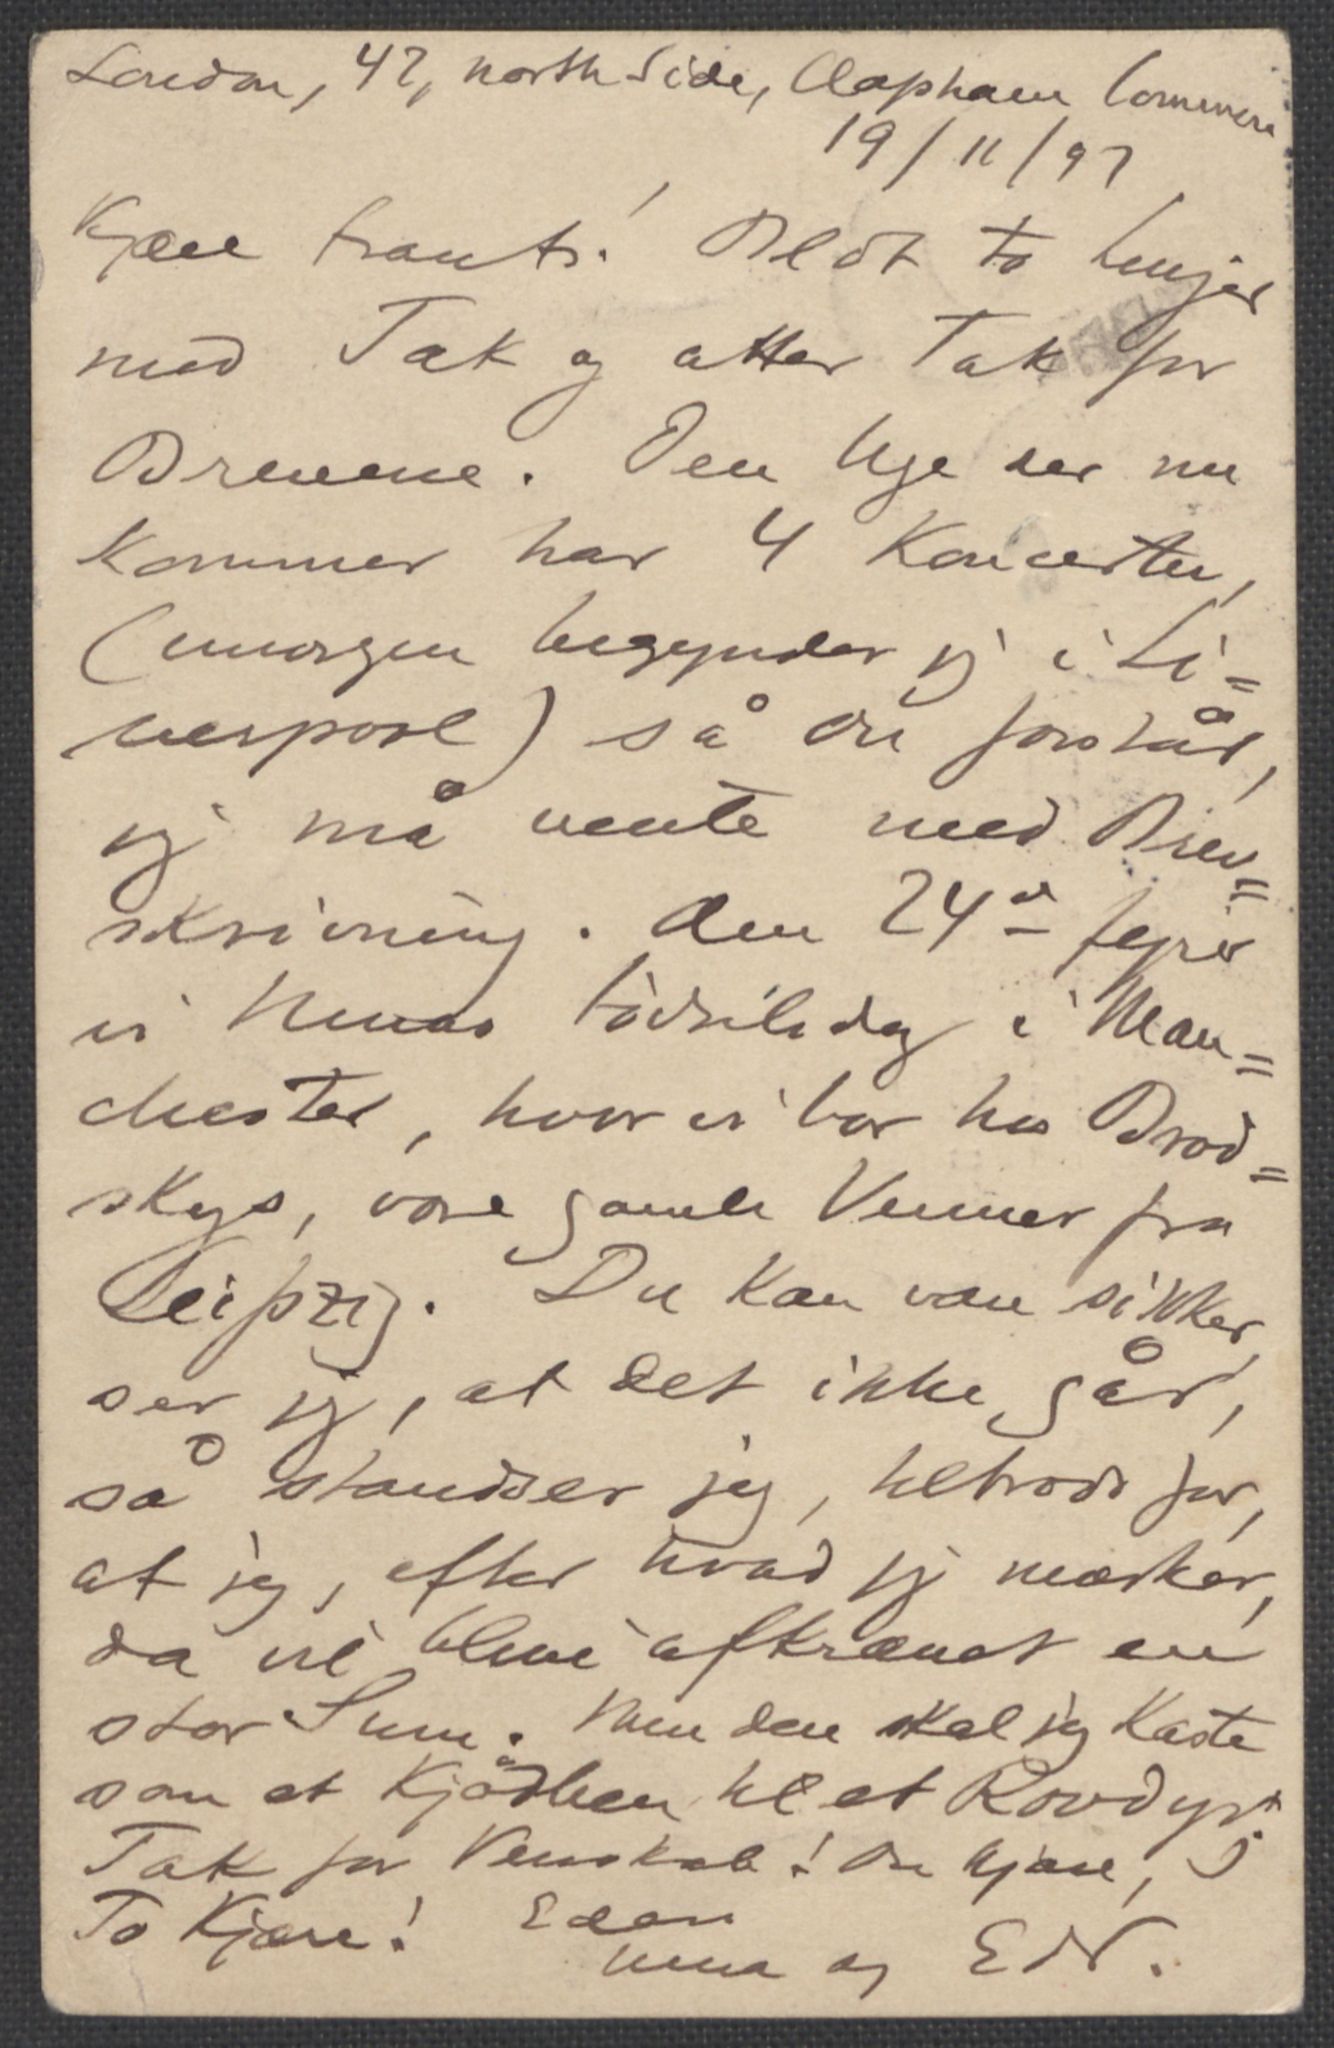 London, 47, North Side, Clapham Common
19/11/97
Kjære Frants! Blot to Linjer
med Tak og atter Tak for
Brevene. Den Uge der nu
kommer har 4 Koncerter,
(imorgen begynder jeg i Li=
verpool) så Du forstår,
jeg må vente med Brev=
skrivning. Den 24de fejrer
vi Ninas Födselsdag i Man=
chester, hvor vi bor hos Brod=
skys, vore gamle Venner fra
Leipzig. Du kan være sikker,
ser jeg, at det ikke går,
så standser jeg, tiltrods for,
at jeg, efter hvad jeg mærker,
da vil blive afkrævet en
stor Sum. Men den skal jeg kaste
som et Kjödben til et Rovdyr.
Tak for Venskab! Du kjære, I
To Kjære! Eders
Nina og Edv.